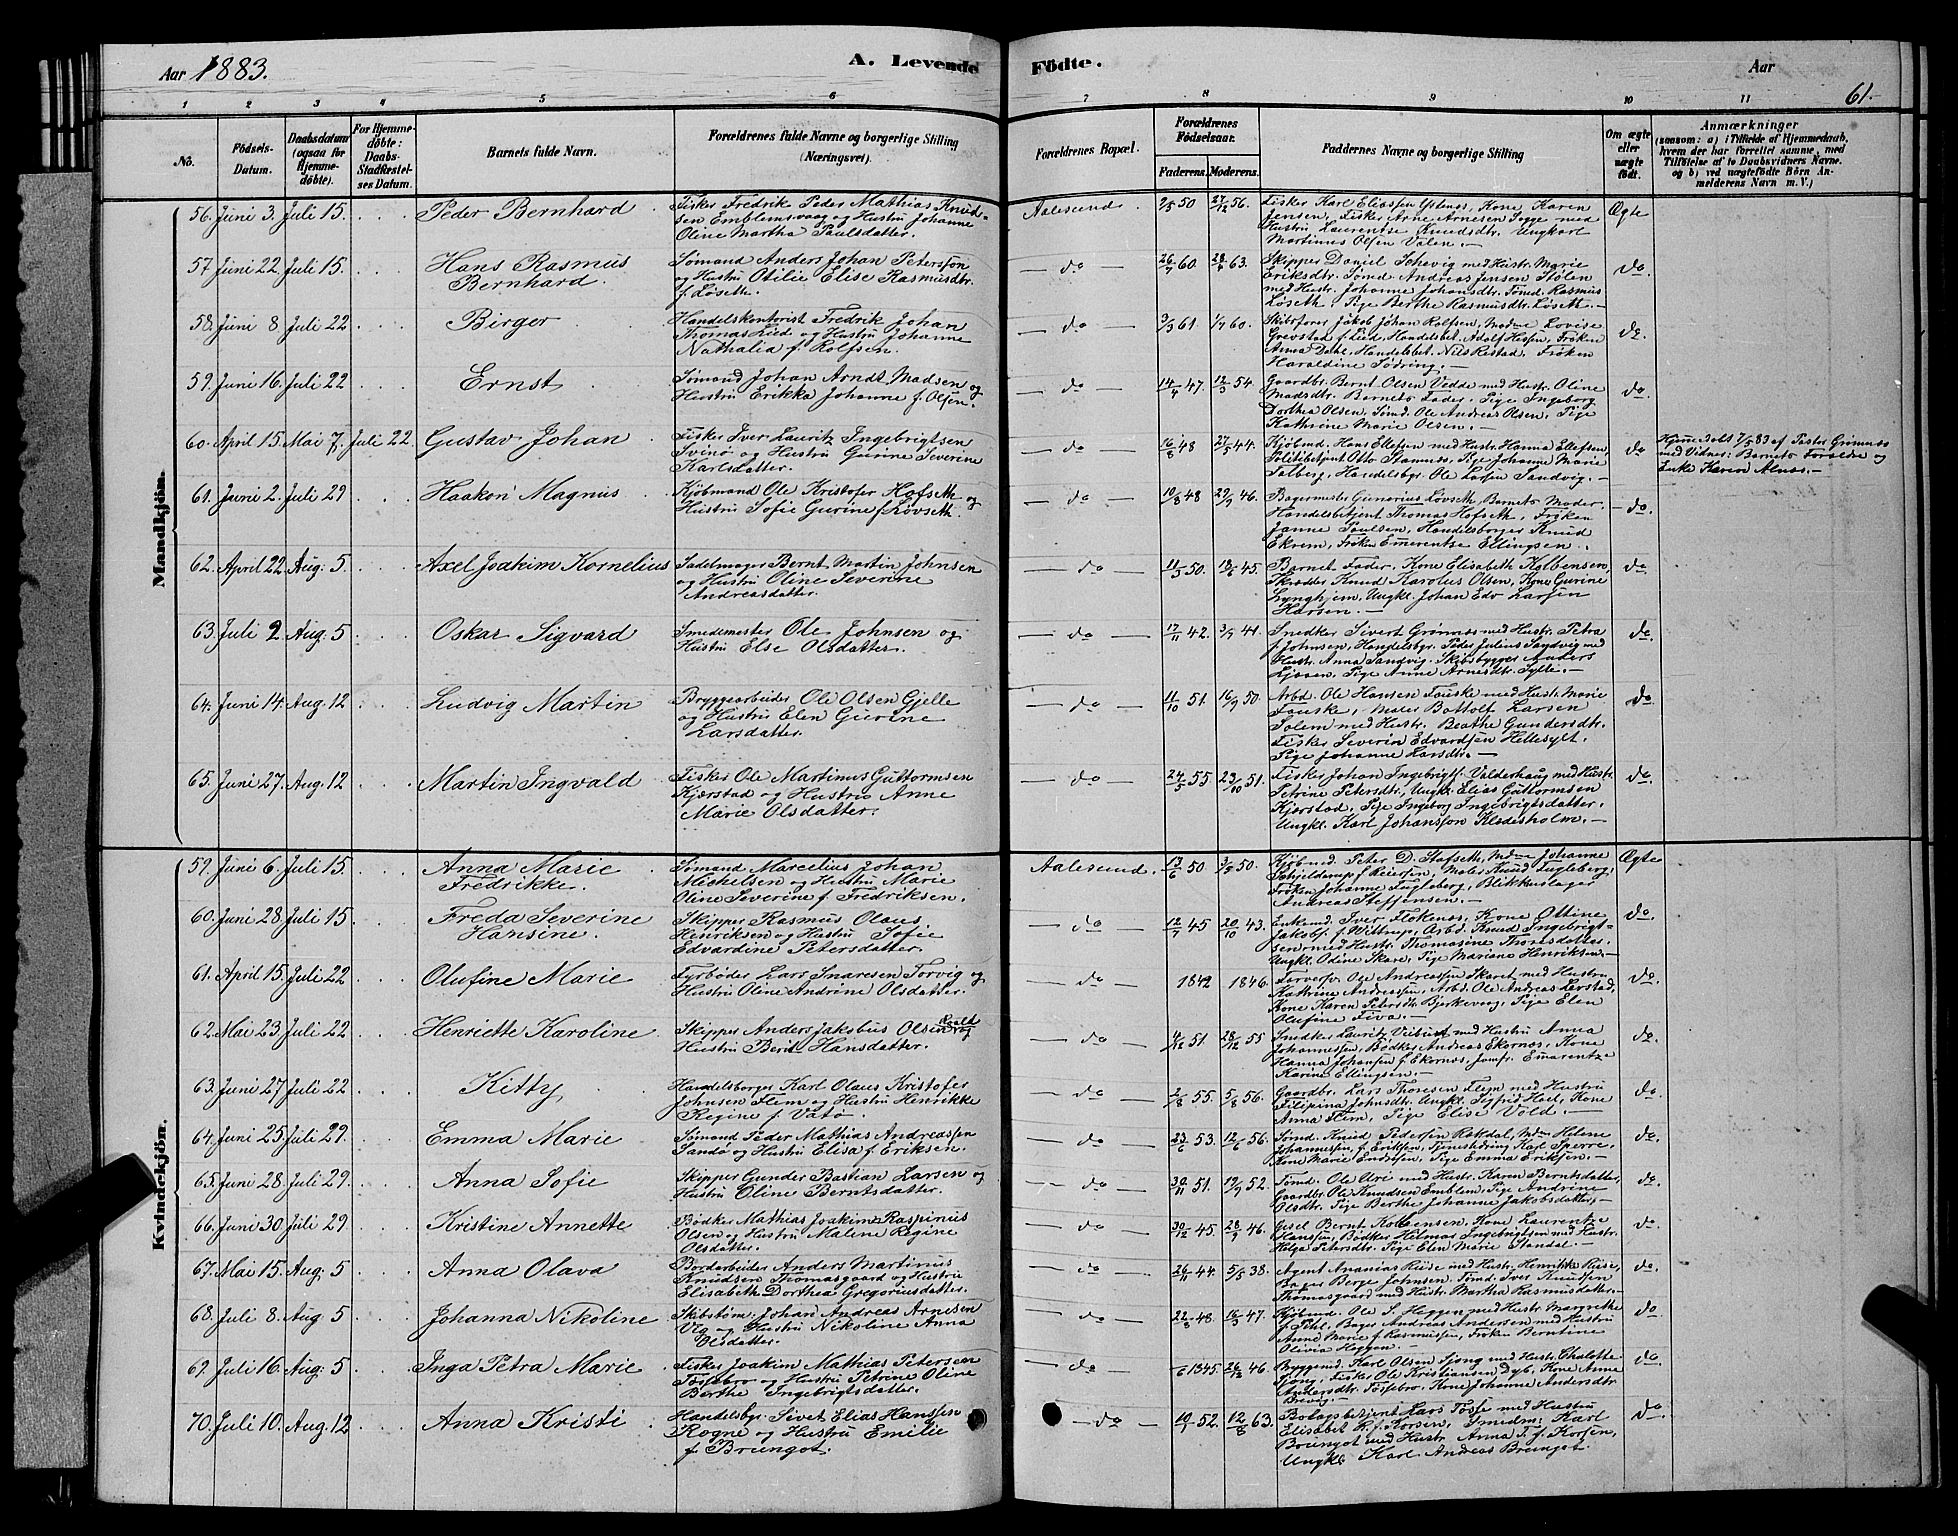 Aar 1883.
A. Levende Fødte.
Aar
61.
1 2 3 4 5 6 7 8 9 10 11
No.
Fødsels-Datum.
Daabsdatum (ogsaa for Hjemmedøbte).
For Hjemmedøbte: Daabs-Stadfæstelses Datum.
Barnets fulde Navn.
Forældrenes fulde Navne og borgerlige Stilling (Næringsvei).
Forældrenes Bopæl.
Forældrenes Fødselsaar.
Faderens. Moderens.
Faddernes Navne og borgerlige Stilling
Om ægte eller uægte født.
Anmærkninger
(saasom: a) i Tilfælde af Hjemmedaab, hvem der har forrettet samme, med Tilføielse af to Daabsvidners Navne. og b) ved uægtefødte Børn Anmelderens Navn m. V.)
Mandkjøn.
56. Juni 3. Juli 15. Peder Bernhard
Fisker Fredrik Peder Mathias Knud-
sen Emblemsvaag og Hustru Johanne
Oline Martha Paulsdatter.
Aalesund 2/5 50 27/12 56.
Fisker Karl Eliassen Ystenes, Kone Karen
Jensen, Fisker Arne Arnesen Sygge med
Hustru Laurentse Knudsdtr. Ungkarl
Martinus Olsen Valen.
Ægte
57 Juni 22. Juli 15. Hans Rasmus
Bernhard.
Sømand Anders Johan Peterson
og Hustru Otilie Elise Rasmusdtr.
f. Løseth.
do 26/7 60. 63.
Skipper Daniel Sohevig med Hustr. Marie
Eriksdtr. Sømd. Andreas Jensen Stølen
med Hustr. Johanne Johansdtr. Sømd. Rasmus
Løseth, Pige Berthe Rasmusdtr. Løseth.
do.
58. Juni 8. Juli 22 Birger
Handelskontorist Fredrik Johan
Thomas Lied og Hustru Johanne
Nathalia f. Rolfsen.
do 3/3 61 1/7 60.
Skibsfører Jakob Johan Rolfsen, Madme Lovise
Grevstad f. Lied, Handelsbet. Adolf Hessen, Frøken
Anna Dahl, Handelsbet. Nils Ristad, Frøken
Haraldine Sødring.
do.
59. Juni 16. Juli 22 Ernst
Sømand Johan Arndt Madsen og
Hustru Erikka Johanne f. Olsen.
do 14/4 47. 12/3 54.
Gaardbr. Bernt Olsen Vedde med Hustr. Oline
Madsdtr. Barnets Fader. Pige Ingeborg
Dorthea Olsen, Sømd. Ole Andreas Olsen, Pige
Kathrine Marie Olsen.
do.
60. April 15. Mai 7. Juli 22. Gustav Johan
Fisker Iver Lauritz Ingebrigtsen
Svinø og Hustru Gurine Severine
Karlsdatter.
do 16/8 48 27/5 44.
Kjøbmd. Hans Ellefsen med Hustr. Hanna Ellefsen,
Politibetjent Otto Stannes, Pige Johanne Marie
Solberg, Handelsbgr. Ole Larsen Sandvig.
do
Hjemmedøbt 7/5 83 af Pastor Grimnes
med Vidner: Barnets Forældre og
Enke Karen Alnes.
61. Juni 2. Juli 29 Haakon Magnus
Kjøbmand Ole Kristofer Hofseth og
Hustru Sofie Gurine f. Løvseth.
do 10/8 48 29/9 46.
Bagermester Gunarius Løvseth, Barnets Moder,
Handelsbetjent Thomas Hofseth, Frøken
Janne Paulsen, Handelsborger Knud
Ekrem, Frøken Emerentse Ellingsen.
do.
62. April 22 Aug. 5 Axel Joakim Kornelius
Sadelmager Bernt Martin Johnsen
og Hustru Oline Severine
Andreasdatter.
do 11/5 50. 18/6 45.
Barnet Fader. Kone Elisabeth Kolbensen,
Skrædder Knud Karolus Olsen, Kone Gurine
Lynghjem, Ungkl. Johan Edv Larsen
Harsen.
do.
63. Juli 2. Aug. 5 Oskar Sigvard
Smedemester Ole Johnsen og
Hustru Else Olsdatter.
do 17/11 42. 3/7 41.
Snedker Sivert Grønnes med Hustr. Petra
f. Johnsen, Handelsbgr. Peder Julius Sandvig med
Hustr. Anna Sandvig. Skibsbygger Anders
Ljøen, Pige Anne Arnesdtr. Sylte.
do.
64. Juni 14. Aug. 12 Ludvig Martin
Bryggearbeider Ole Olsen Gjelle
og Hustru Elen Gurine
Larsdatter.
do 11/10 51. 16/9 50.
Arbd. Ole Hansen Fauske med Hustr. Marie
Fauske, Maler Bottolf Larsen
Solem med Hustr. Beathe Gundersdtr.
Fisker Severin Edvardsen Hellesylt.
Pige Johanne Larsdtr.
do.
65. Juni 27. Aug. 12 Martin Ingvald
Fisker Ole Martinus Guttormsen
Kjærstad og Hustru Anne
Marie Olsdatter.
do 24/5 55 23/10 51.
Fisker Johan Ingebrigts. Valderhaug med Hustr.
Petrine Petersdtr, Ungkl. Elias Guttormsen
Kjerstad, Pige Ingeborg Ingebrigtsdatter.
Ungkl. Karl Johansson Kladesholm.
do.
Kvindekjøn.
59. Juni 6. Juli 15. Anna Marie
Fredrikke.
Sømand Marcelius Johan
Michelsen og Hustru Marie
Oline Severine f. Fredriksen.
Aalesund. 13/6 50 50.
Kjøbmd. Peter D. Stafseth, Mdme Johanne
Schjeldsrup f. Reiersen, Maler Knud Fugleberg,
Frøken Johanne Fugleberg, Blikkenslager
Andreas Steffensen.
Ægte
60. Juni 28. Juli 15 Freda Severine
Hansine.
Skipper Rasmus Olaus
Henriksen og Hustru Sofie
Edvardine Petersdatter.
do 12/7 45 20/10 43.
Enkemd. Iver Flokenes, Kone Ottine
Jakobs. f. Wittrup, Arbd. Knud Ingebrigt-
sen med Hustr. Thomasine Thoresdatter.
Ungkl. Odine Skare, Pige Mariane Henriksen.
do.
61. April 15. Juli 22 Olufine Marie
Fyrbøder Lars Snaresen Torvig og
Hustru Oline Andrine Olsdatter.
do 1842 1846.
Farver Ole Andreassen Skaret med Hustru
Kathrine Andreassen, Arbd. Ole Andreas Lerstad,
Kone Karen Petersdtr. Bjerkevoeg, Pige Elen
Olufine Fiva.
do.
62. Mai 23 Juli 22 Henriette Karoline
Skipper Anders Jakobus Olsen Roald og
Hustru Berit Hansdatter.
do 4/12 51 28/12 55
Snedker Lauritz Veibust med Hustru Anna
Johannessen, Bødker Andreas Ekornes, Kone
Hanna Johansen f. Ekornes, Jomfr. Emarentze
Karine Ellingsen.
do.
63. Juni 27 Juli 22 Kitty
Handelsborger Karl Olaus Kristofer
Johnsen Flem og Hustru Henrikke
Regine f. Vatø.
do 2/8 55. 5/8 56.
Gaardbr. Lars Thoresen Flem med Hustru
Filipina Johnsdtr. Ungkl. Sigfrid Hoel, Kone
Anna Flem, Pige Elise Vold.
do.
64. Juni 25. Juli 29. Emma Marie
Sømand Peder Mathias Andreassen
Sandø og Hustru Elisa f. Eriksen.
do 23/6 53. 12/6 56.
Sømd. Knud Pedersen Røkdal, Mdm Helene
Johannessen, f. Eriksen, Tjenestedreng Karl Sperre,
Kone Marie Endresen, Pige Emma Eriksen.
do.
65. Juni 28. Juli 29. Anna Sofie
Skipper Gunder Bastian Larsen og
Hustru Oline Berntsdatter.
do 30/11 51. 19/9 52.
Sømd. Ole Ure med Hustr. Karen Berntsdatter,
Gaardbr. Ole Knudsen Emblem, Pige Andrine
Olsdtr. Pige Berthe Johanne Jakobsdatter.
do.
66. Juni 30. Juli 29. Kristine Annette
Bødker Mathias Joakim Raspinus
Olsen og Hustru Malene Regine
Olsdatter.
do 30/12 45. 28/9 46.
Gesel Bernt Kolbensen, Kone Laurentze
Hanssen, Bødker Helmar Ingebrigtsen med Hustr.
Helga Petersdtr. Pige Elen Marie Standal.
do.
67. Mai 15. Aug. 5 Anna Olava
Bordarbeider Anders Martinus
Knudsen Thomasgaard og Hustru
Elisabeth Dorthea Gregoriusdatter.
do 26/11 44. 5/5 38.
Agent Ananias Riise med Hustr. Henrikke Riise,
Bager Berge Johnsen, Sømd. Iver Knudsen
Thomasgaard med Hustr. Martha Rasmusdatter.
do.
68. Juli 8. Aug. 5 Johanna Nikoline
Skibstøm. Johan Andreas Arnesen
og Hustru Nikoline Anna
Olsdatter.
do 22/8 48. 16/3 47.
Kjøbmd. Ole S. Heggen med Hustr. Margrethe
f. Pihl, Bager Andreas Andersen med Hustru
Anne Marie f. Rasmussen, Frøken Berntine
Olivia Heggen.
do
69. Juli 16. Aug. 5 Inga Petra Marie
Fisker Joakim Mathias Petersen
Fosebro og Hustru Petrine Oline
Berthe Ingebrigtsdatter.
do 1845. 26/12 46.
Byggemd. Karl Olsen Sjong med Hustr. Chalotte
Sjong, Fisker Ole Kristiansen Dyb, Kone Anne
Andersdtr. Fosebro, Kone Johanne Andersdtr
Brevig.
do.
70. Juli 10. Aug. 12 Anna Kristi
Handelsbgr. Sivet Elias Hanssen
Rogne og Hustru Emilie
f. Brungot.
do 19/1 52. 12/8 63.
Botagsbetjent Lars Fosse med Hustru
Elisabet R. f. Korsen, Smedm. Karl
Brungot med Hustr. Anna T. f. Korsen,
Ungkl. Karl Andreas Brungot.
do.